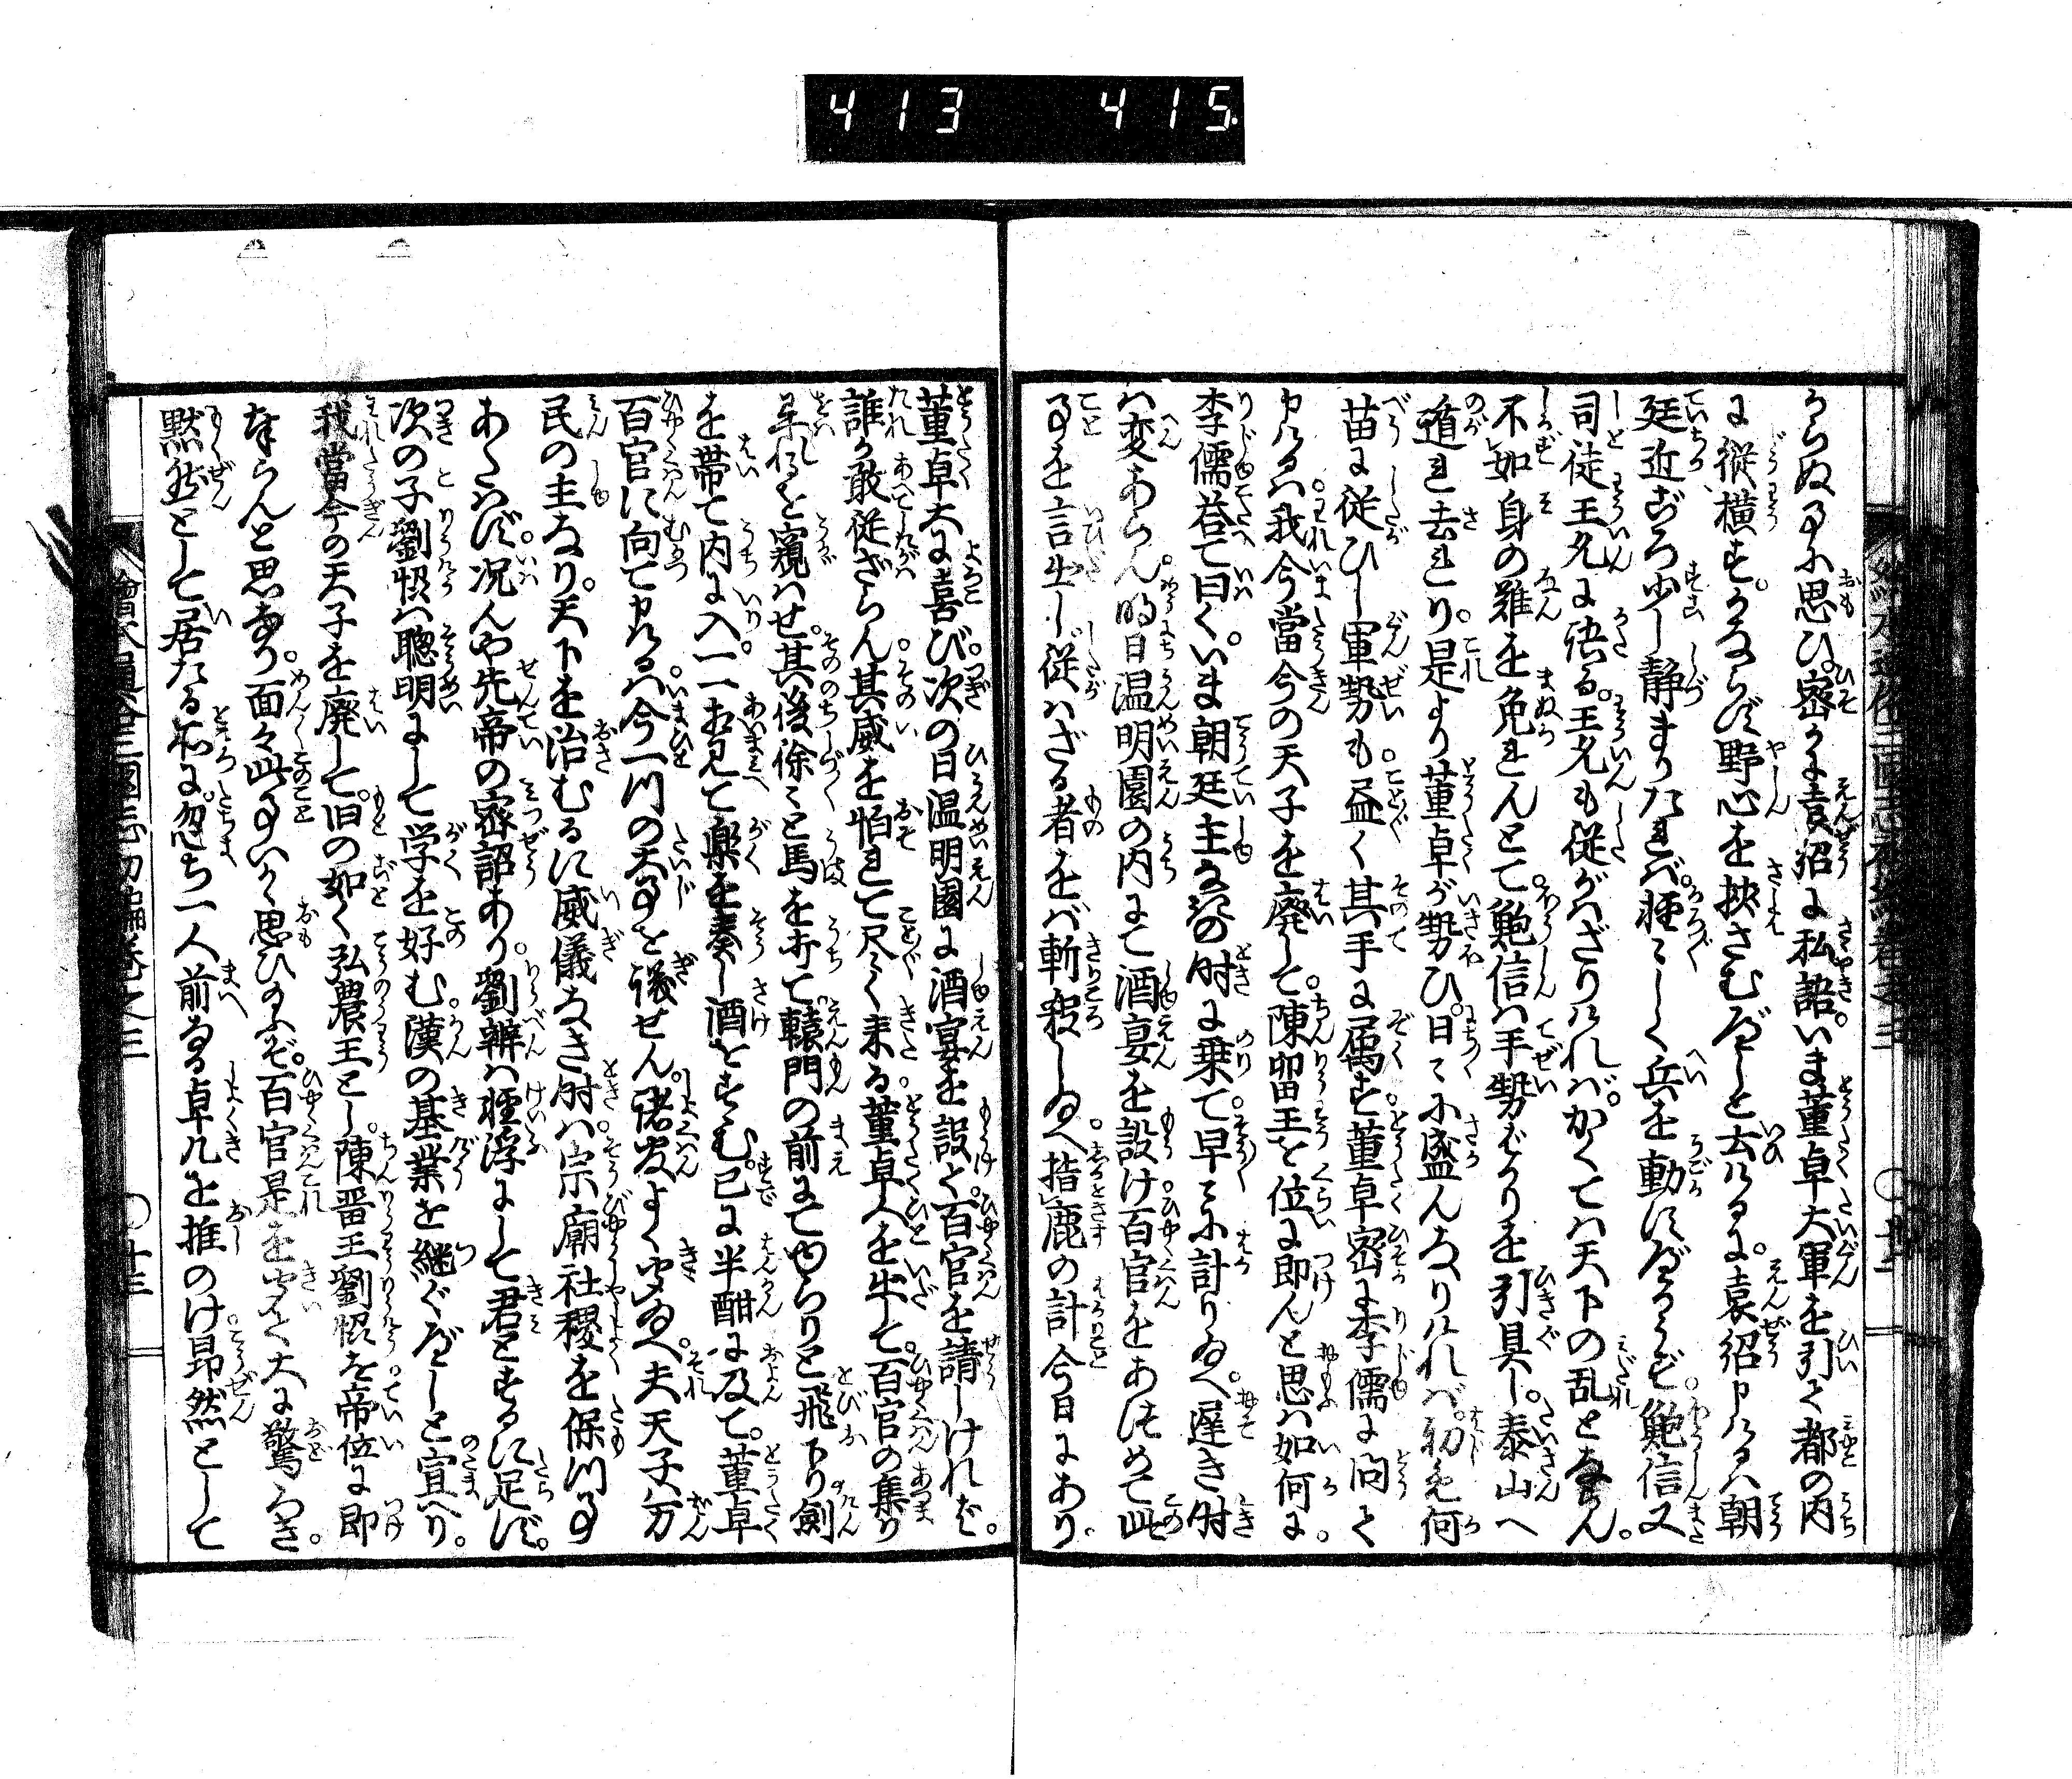 413 415
らぬ事に思ひ密かに袁紹に私語いま董卓大軍を引て都の内
に縦横す。かならず野心を挟さむべしと云ける。に袁紹申けるハ朝
廷近ごろ少し静まりたれバ軽々しく兵を動かすべからず。鮑信又
司徒王允に語る。王允も従がハざりけれバ。かくてハ天下の乱となん。
不如身の難を免れんとて鮑信ハ手勢ばかりを引具し。泰山へ
遁れ去れり。是より董卓が勢ひ。日々に盛んなりけれバ初め何
苗に従ひし軍勢も。盡く其手に属す。董卓密に李儒に問て
申けるハ。我今當今の天子を廃して。陳留王を位に即んと思ハ如何に。
李儒荅て曰く。いま朝廷主なきの時に乗て。早々に計り給へ。遅き時
ハ変あらん。明日温明園の内にて酒宴を設け百官をあつめて此
事を言出し従ハざる者をバ斬殺し給へ。指鹿の計今日にあり。
董卓大に喜び。次の日温明園に酒宴を設て。百官を請しけれバ。
誰か敢従ざらん。其威を怕れて尽く来る。董卓人を出して。百官の集り
来れるを窺ハせ。其後徐々と馬を打て。轅門の前にてゆらりと飛下り剣
を帯て内に入。一一相見て楽を奏し酒をすゝむ。已に半酣に及て。董卓
百官に向て申けるハ。今一つの大事を議せん。諸友よく聞給へ。夫天子ハ万
民の主なり。天下を治むるに威儀なき時ハ。宗廟社稷を保つ事
あたハず。况んや先帝の密詔あり。劉辨ハ軽浮にして君とするに足ず。
次の子劉協ハ聡明にして学を好む。漢の基業を継ぐべしと宣へり。
我當今の天子を廃して。旧の如く弘農王とし。陳留王劉協を帝位に即
奉らんと思なり。面々此事いかゞ思ひ給ふぞ。百官是を聞て大に驚ろき。
黙然として居たる所に。忽ち一人前なる卓几を推のけ。昂然として
繪本通俗三國志初編巻之三 〇 十三